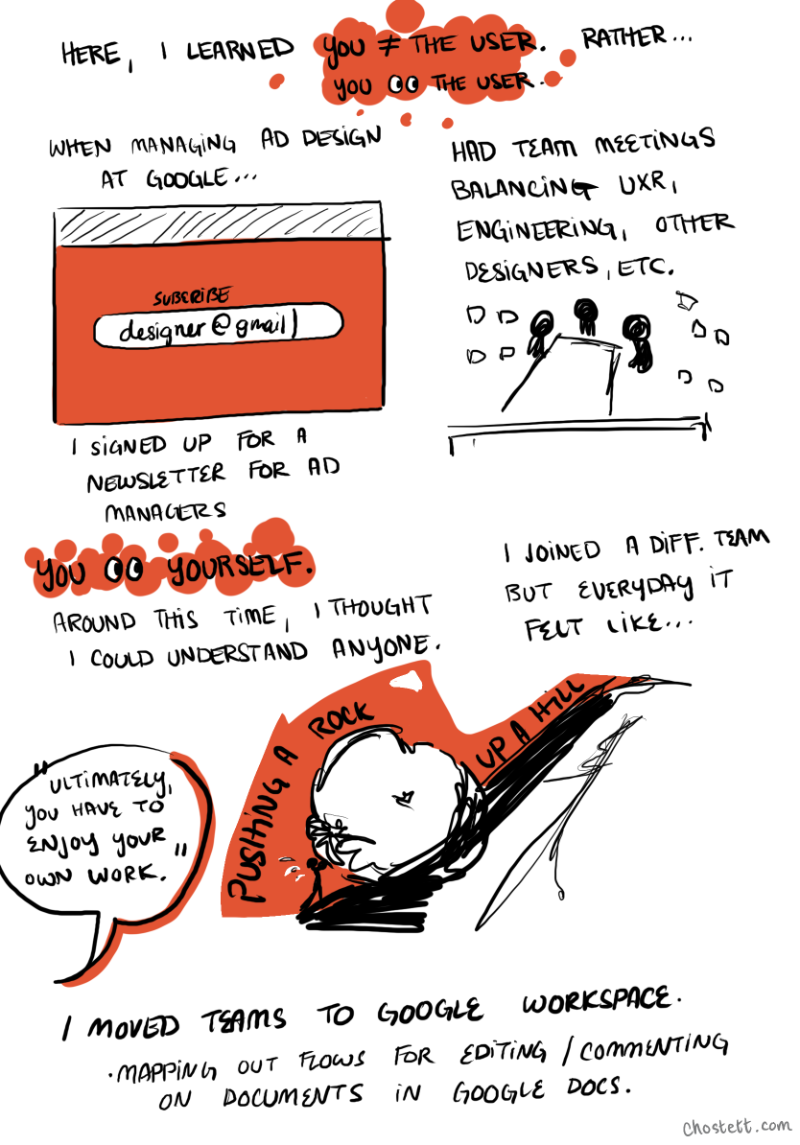 HERE, I LEARNED YOU ≠ THE USER. RATHER...
YOU 👀 THE USER.
WHEN MANAGING AD DESIGN
AT GOOGLE...
SUBCRIBE
designer@gmail|
I SIGNED UP FOR A
NEWSLETTER FOR AD
MANAGERS
HAD TEAM MEETINGS
BALANCING UXR,
ENGINEERING, OTHER
DESIGNERS, ETC.
YOU 👀 YOURSELF.
AROUND THIS TIME, I THOUGHT
I COULD UNDERSTAND ANYONE.
I JOINED A DIFF. TEAM
BUT EVERYDAY IT
FELT LIKE...
PUSHING A ROCK UP A HILL
"ULTIMATELY,
YOU HAVE TO
ENJOY YOUR
OWN WORK."
I MOVED TEAMS TO GOOGLE WORKSPACE.
• MAPPING OUT FLOWS FOR EDITING / COMMENTING
ON DOCUMENTS IN GOOGLE DOCS.
chostett.com